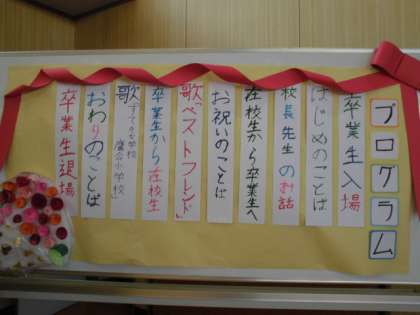 プログラム
卒業生入場
はじめのことば
校長先生のお話
在校生から卒業生へ
お祝いのことば
歌「ベストフレンド」
卒業生から在校生
歌「すてきな学校 鷹合小学校」
おわりのことば
卒業生退場